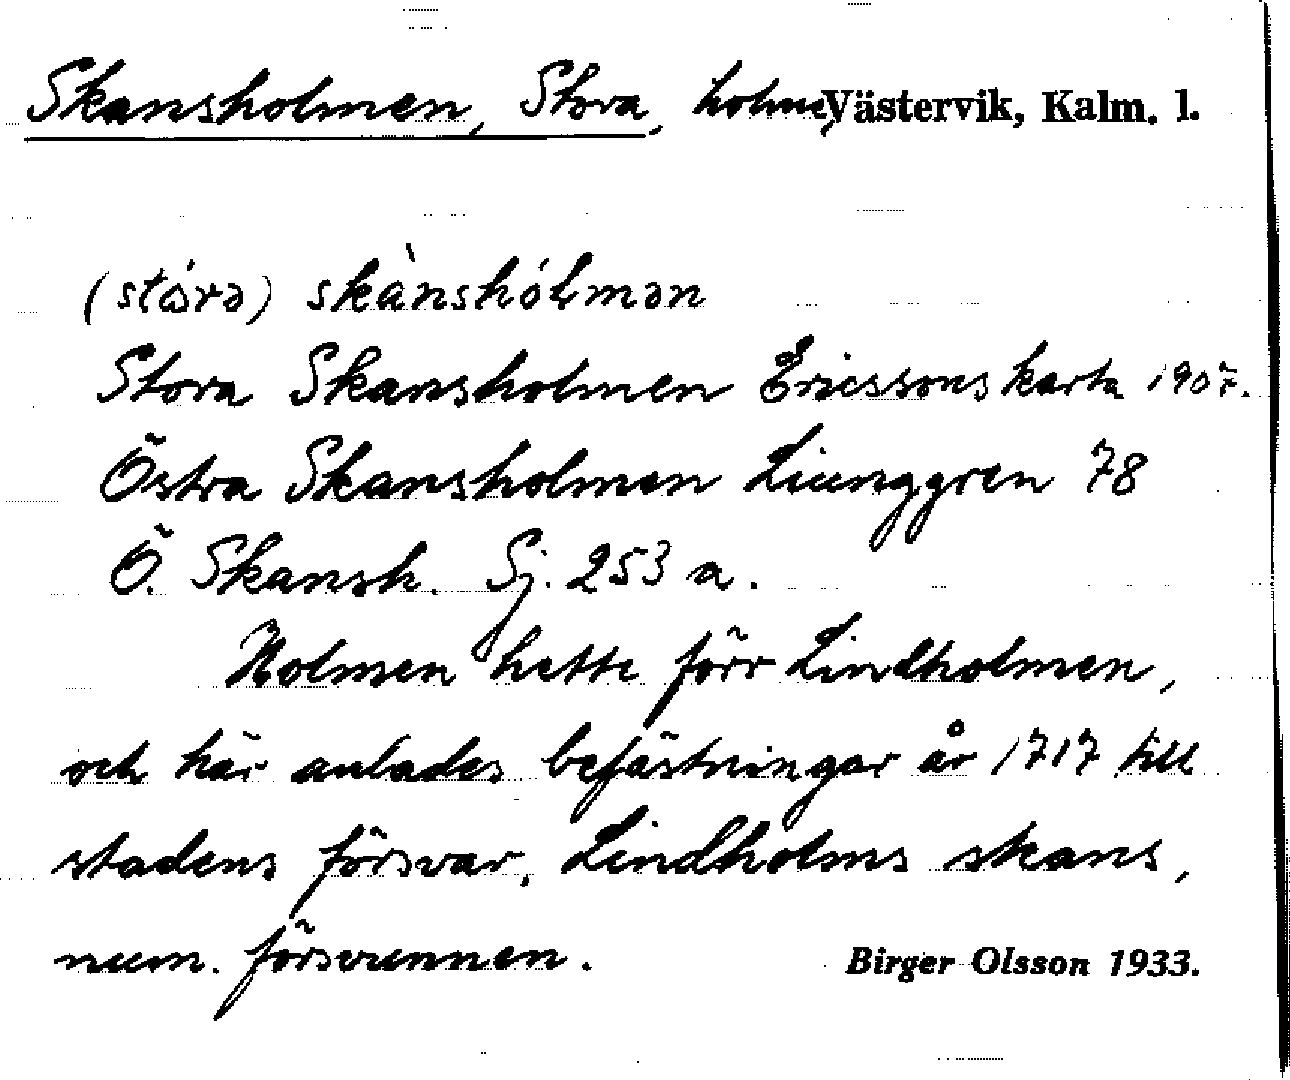 Skansholmen, Stora, holme, Västervik, Kalm. l.
(stɷ́rə) skànshólmən
Stora Skansholmen Ericssons karta 1907.
Östra Skansholmen Liunggren 78
Ö. Skansh. Sj. 253 a.
Holmen hette förr Lindholmen,
och här anlades befästningar år 1717 till
stadens försvar, Lindholms skans,
num. försvunnen.
Birger Olsson 1933.